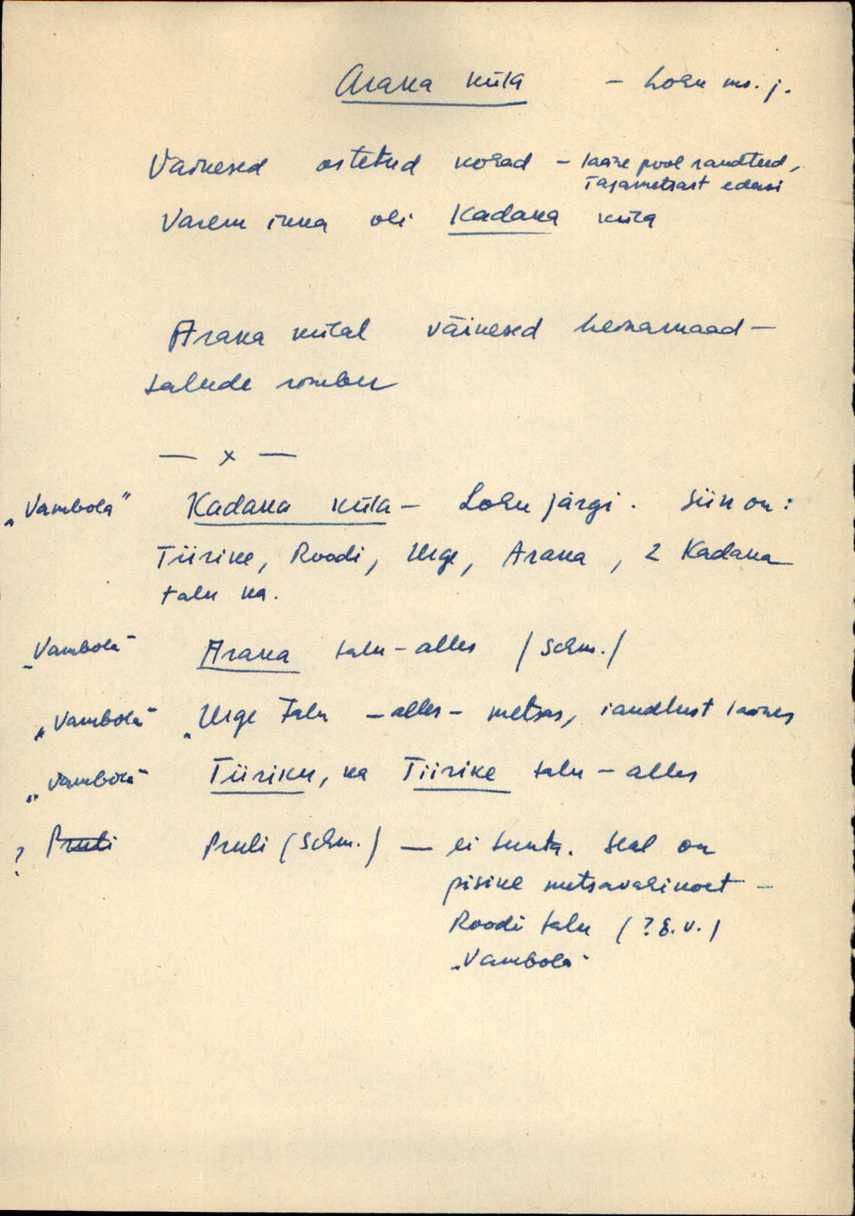 Araka küla – Lohu ms. j.
Väikesed ostetud kohad – lääne pool raudteed,
Tagametsast edasi
Varem ikka oli Kadaka küla
Araka külal väikesed heinamaad –
talude ümber
— x —
„Vambola" Kadaka küla – Lohu järgi. Siin on:
Tiirike, Roodi, Urge, Araka, 2 Kadaka
talu ka.
„Vambola" Araka talu – alles (Schm.)
„Vambola" „Urge Talu – alles – metsas, raudteest läänes
„Vambola" Tiiriku, ka Tiirike talu – alles
? Pruli Pruli (Schm.) — ei tunta. Seal on
pisike metsavahikoht –
Roodi talu (? E.V.)
„Vambola"